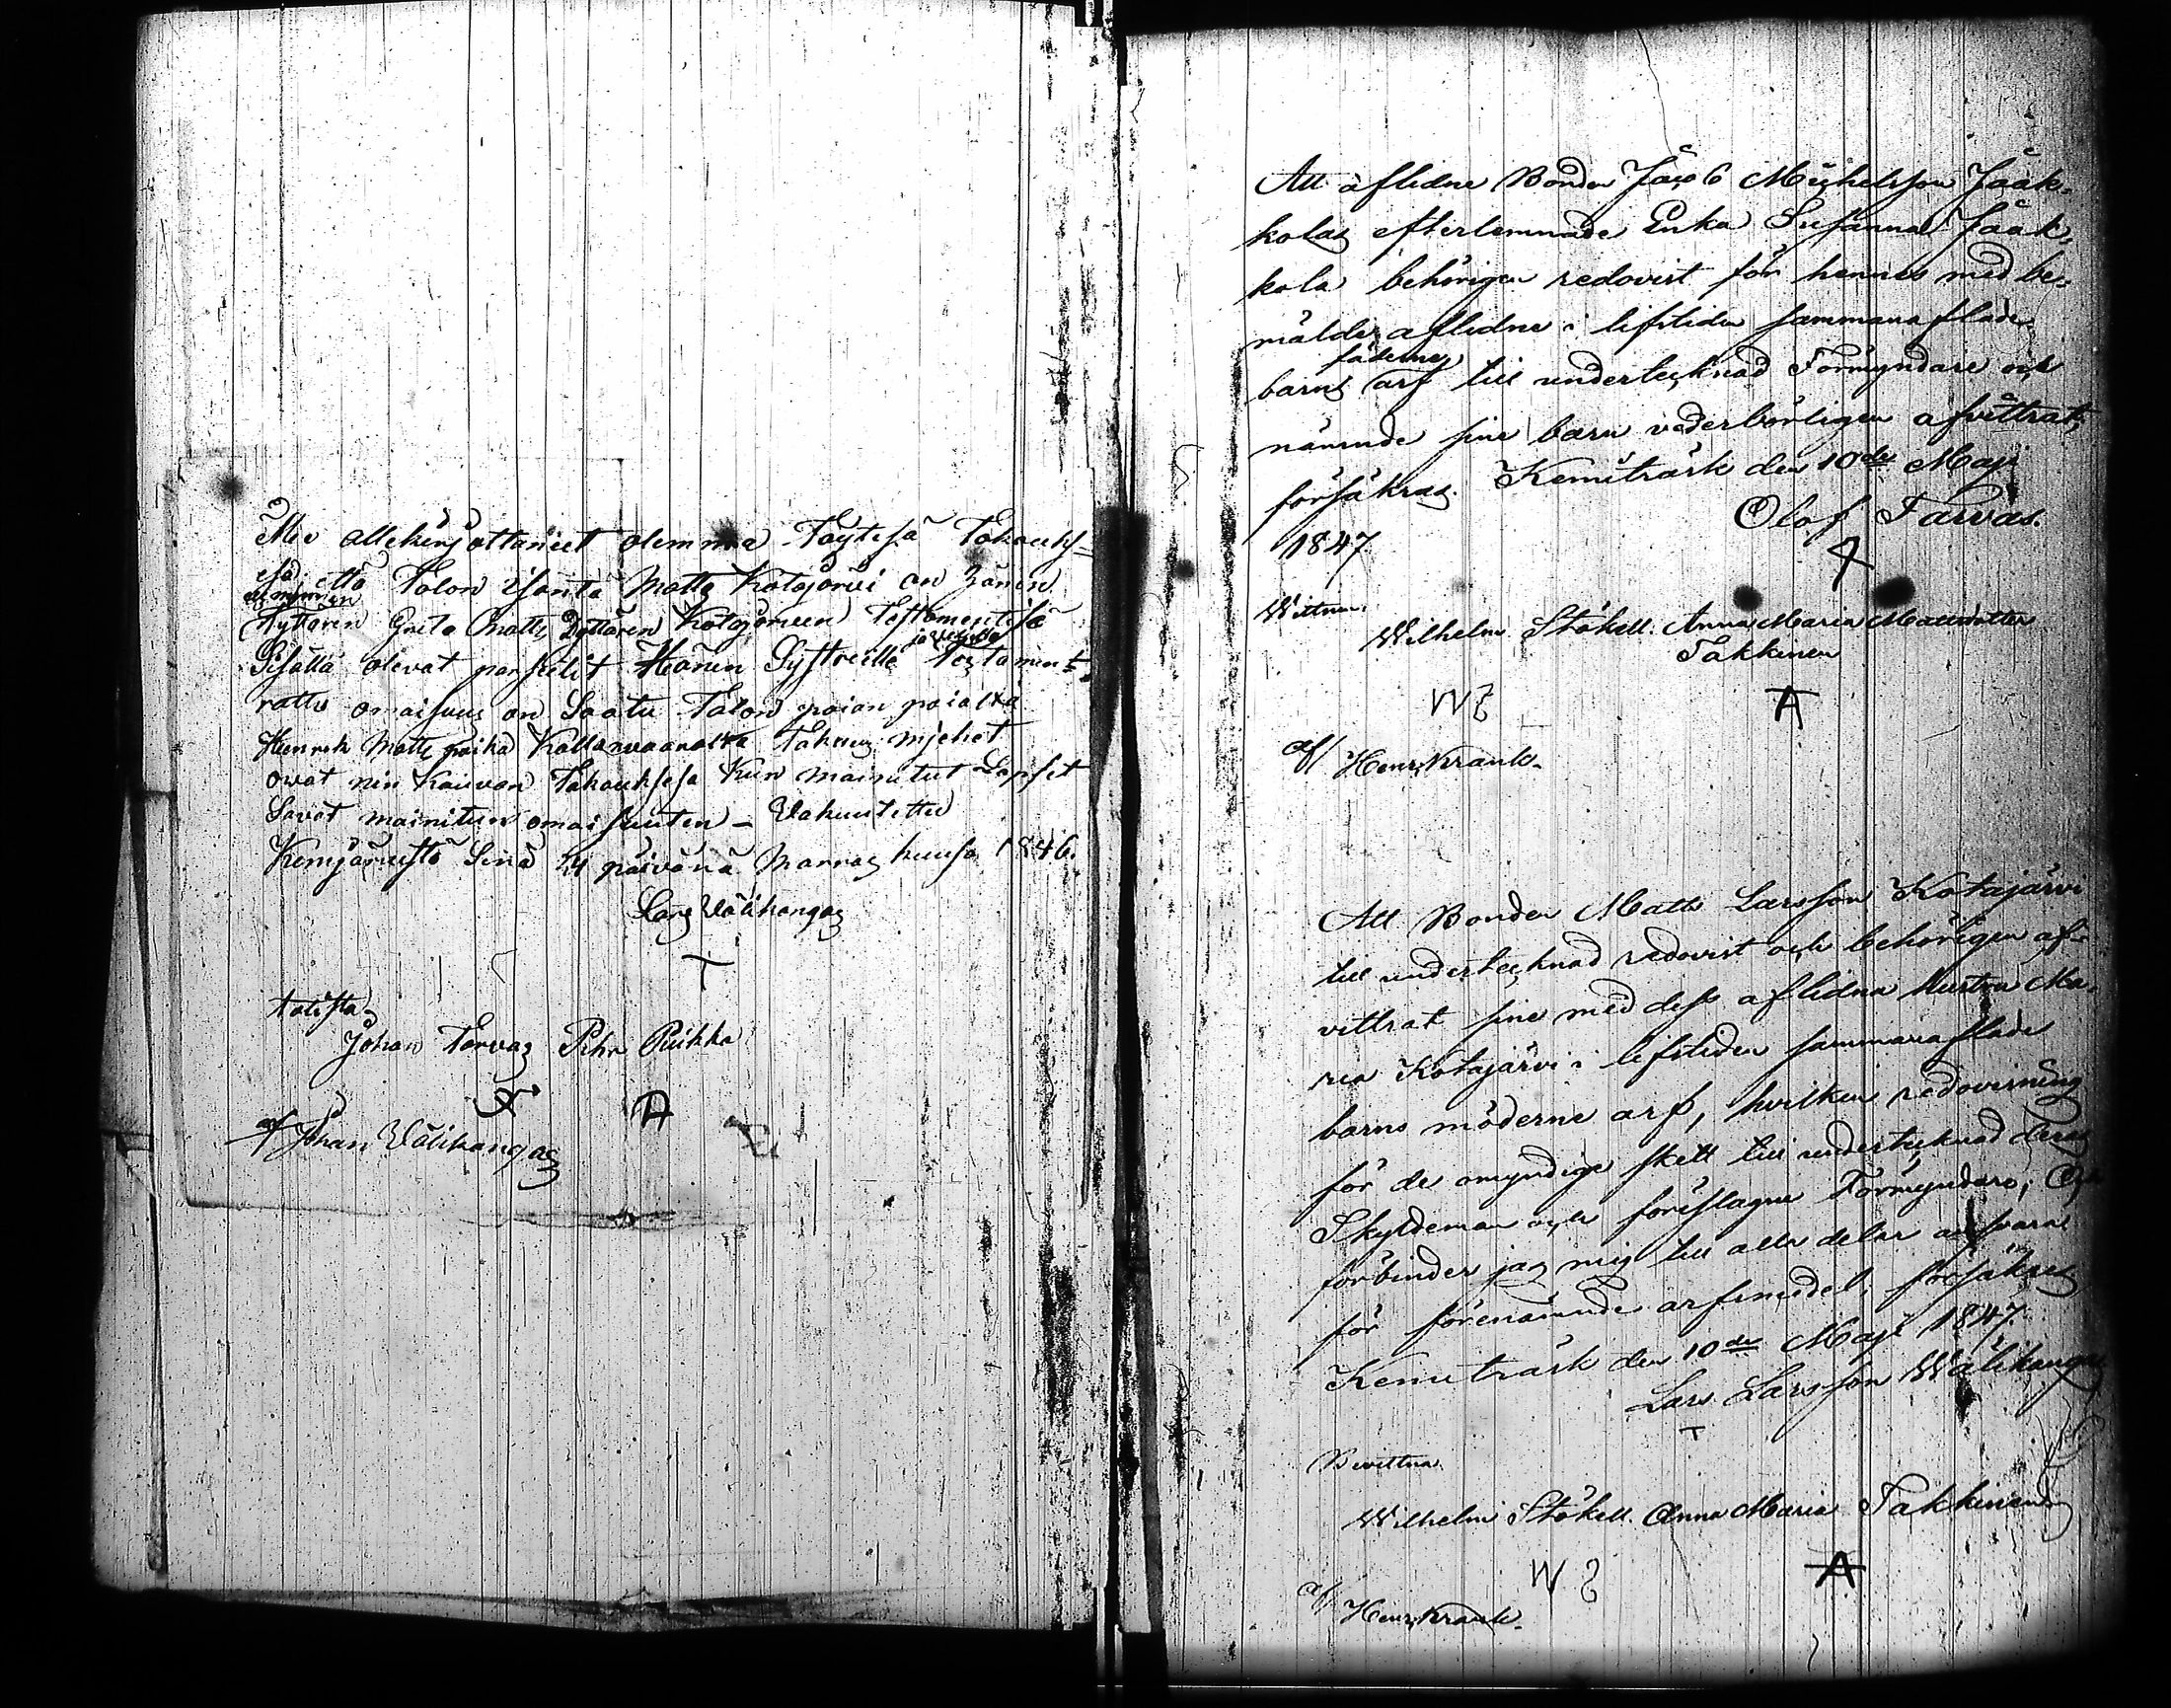 Me allekirjottaneet olemma Täytesä Takauks=
esä, että Talon isäntä Matts Kotajärvi on hänen
Tyttären Greta Matts Dyttären Kotajärveen Testamentisä
Sisällä olevat parselit Hänen Systreille Testament=
rattu omaisuus on Saatu Talon poian poialta
Henrik Matts poika Kallanvaaralta Takaus miehet
ovat nin Kauvan Takauksesa Kun mainitut Lapset
Savat mainitun omaisuuten _ Vakuutettu
Kemijärvestä Sinä 24 päivänä Marras kuusa 1846.
Lars Välikangas
T
totista
Johan Tarvas Pehr Pulkka
A
af Johan Välikangas
Att aflidne Bonden Jacob Michelsson Jaak=
kolas efterlemnade Enka Susanna Jaak=
kola behörigen redovist för hennes med be=
mälde aflidne i lifstiden sammanaflade
fäderne
barns arf till undertecknad Förmyndare och
nämnde sine barn vederbörligen afvittrat,
försäkras. Kemiträsk den 10de Maji
1847
Olof Tarvas.
Wittna.
Wilhelm Stökell. Anna Maria Mattsdotter
Takkinen
A
af
Henr, Krank.
Att Bonden Matts Larsson Kotajärvi
till undertecknad redovist och behörigen af=
vittrat sine med dess aflidna hustru Ma=
ria Kotajärvi i lifstiden sammanaflade
barns möderne arf, hvilken redovisning
för de omyndige skett till undertecknad deras
Skyldeman och föreslagne Förmyndare, Och
förbinder jag mig till alla delar ansvara
för förenämnde arfsmedel, försäkras
Kemiträsk den 10de Maji 1847.
Lars Larsson Wälikangas
T
Bevittna
Wilhelm Stökell. Anna Maria Takkinen
A
af
Henr, Krank.